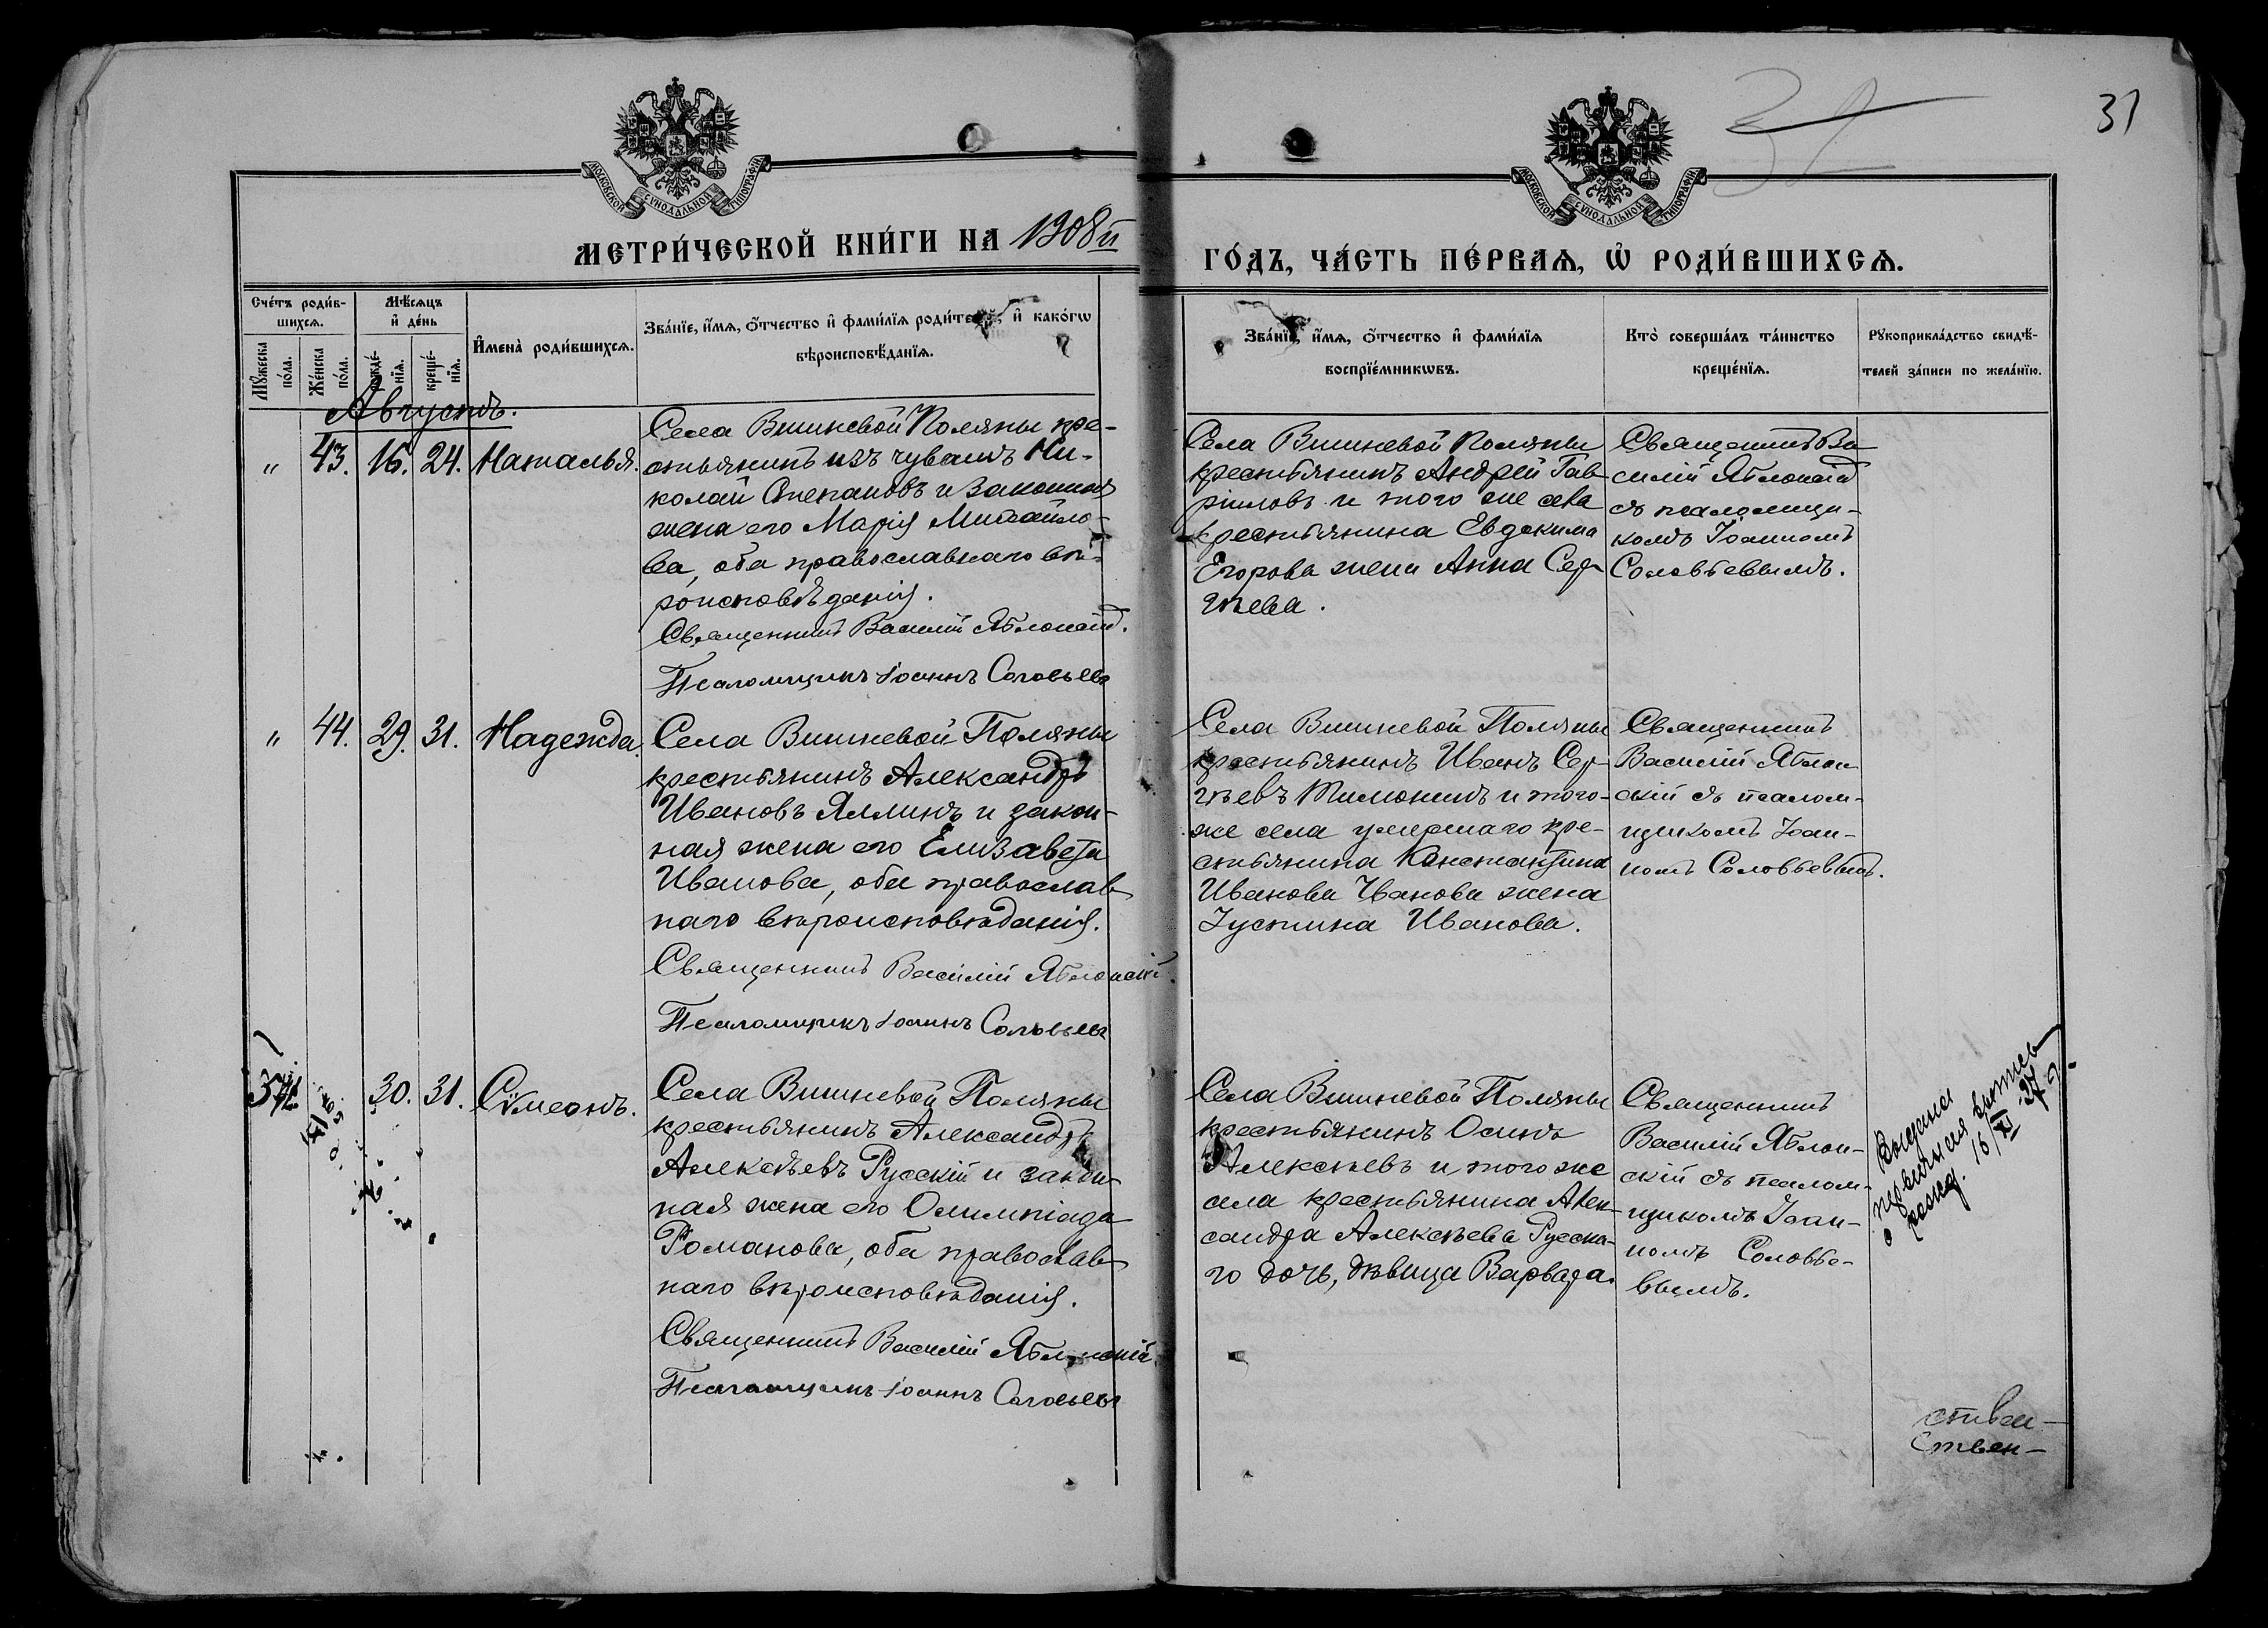 31
МОСКОВСКОЙ СѴНОДАЛЬНОЙ ТИПОГРАФІИ
МОСКОВСКОЙ СѴНОДАЛЬНОЙ ТИПОГРАФІИ
МЕТРИ́ЧЕСКОЙ КНИ́ГИ НА 1908й
ГО́ДЪ, ЧА́СТЬ ПЕ́РВАѦ, Ѡ҆ РОДИ́ВШИХСѦ.
Сче́тъ роди́в-
шихсѧ.
Мꙋ́жеска по́ла.
Же́нска по́ла.
Мѣ́сѧцъ
и҆ де́нь
рожде́-
нїѧ.
креще́-
нїѧ.
И҆мена̀ роди́вшихсѧ.
Зва́нїе, и҆́мѧ, ѻ҆́тчество и҆ фами́лїѧ роди́телей, и҆ како́гѡ
вѣроисповѣ́данїѧ.
Зва́нїе, и҆́мѧ, ѻ҆́тчество и҆ фами́лїѧ
воспрїе́мникѡвъ.
Кто̀ соверша́лъ та́инство
креще́нїѧ.
Рꙋкоприкла́дство свидѣ́-
телей за́писи по жела́нїю.
Августъ.
" 43. 16. 24. Наталья.
Села Вишневой Поляны кре-
стьянинъ изъ чувашъ Ни-
колай Степановъ и законная
жена его Марія Михайло-
ва, оба православнаго вѣ-
роисповѣданія.
Священникъ Василій Яблонскій.
Псаломщикъ Іоаннъ Соловьевъ
Села Вишневой Поляны
крестьянинъ Андрей Гав-
риловъ и того же села
крестьянина Евдокима
Егорова жена Анна Сер-
гѣева.
Священникъ Ва-
силій Яблонскій
съ псаломщи-
комъ Іоанномъ
Соловьевымъ.
" 44. 29. 31. Надежда.
Села Вишневой Поляны
крестьянинъ Александръ
Ивановъ Ялминъ и закон-
ная жена его Елизавета
Иванова, оба православ-
наго вѣроисповѣданія.
Священникъ Василій Яблонскій.
Псаломщикъ Іоаннъ Соловьевъ
Села Вишневой Поляны
крестьянинъ Иванъ Сер-
гѣевъ Тимонинъ и того-
же села умершаго кре-
стьянина Константина
Иванова Чванова жена
Іустина Иванова.
Священникъ
Василій Яблон-
скій съ псалом-
щикомъ Іоан-
номъ Соловьевымъ.
37 30. 31. Сѵмеонъ.
Села Вишневой Поляны
крестьянинъ Александръ
Алексѣевъ Русскій и закон-
ная жена его Олимпіада
Романова, оба православ-
наго вѣроисповѣданія.
Священникъ Василій Яблонскій.
Псаломщикъ Іоаннъ Соловьевъ
Села Вишневой Поляны
крестьянинъ Осипъ
Алексѣевъ и того же
села крестьянина Алек-
сандра Алексѣева Русска-
го дочь, дѣвица Варвара.
Священникъ
Василій Яблон-
скій съ псалом-
щикомъ Іоан-
номъ Соловье-
вымъ.
Выдана
о рожд. 16/XI 37 г.
ствен-
ствен-